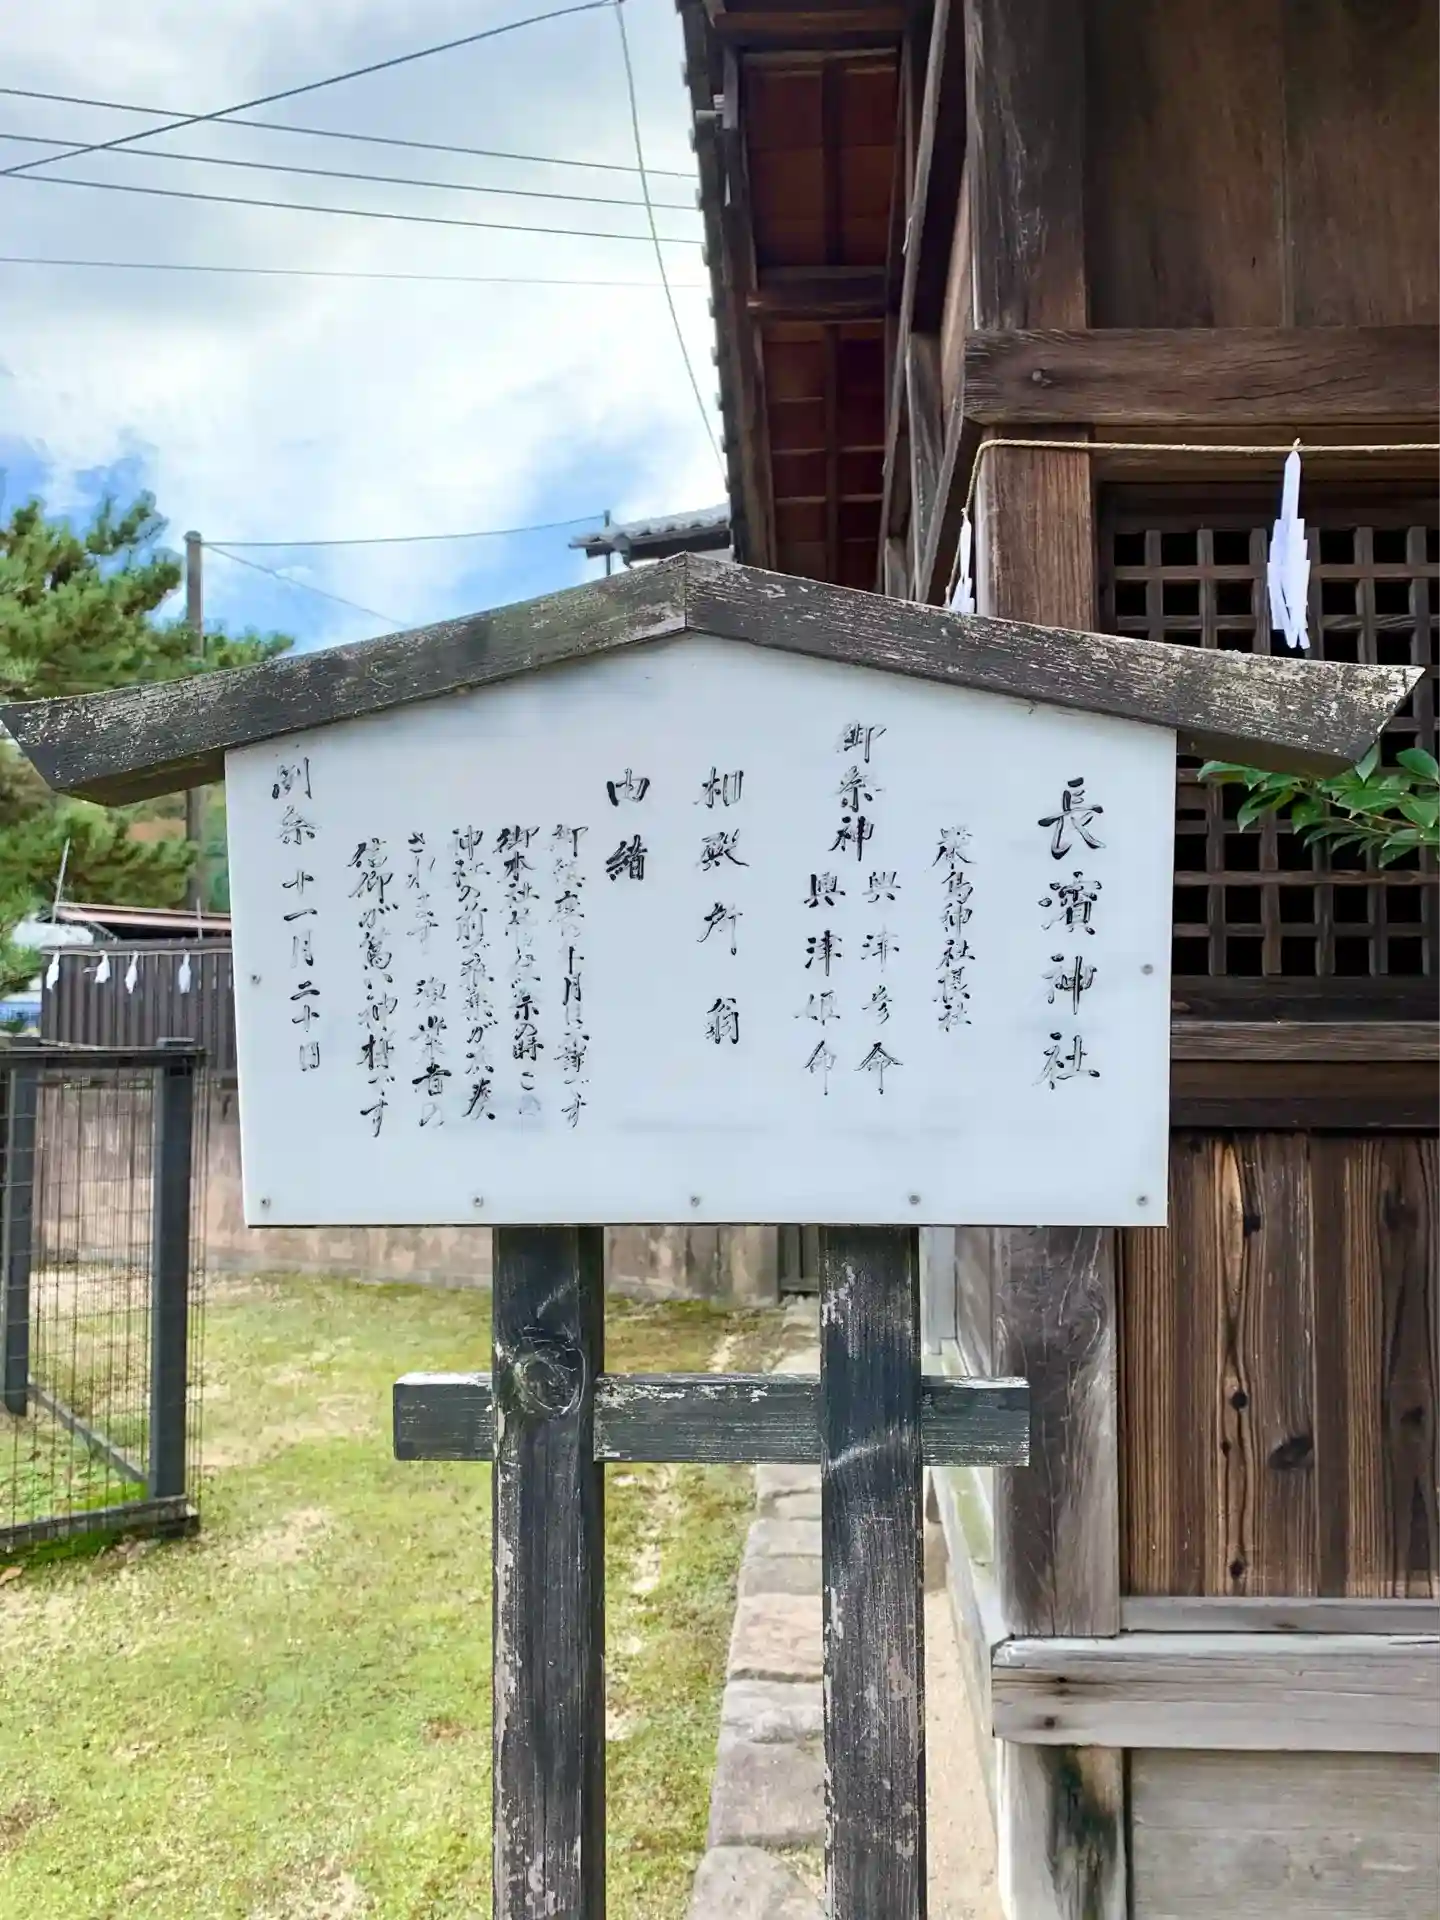 長濱神社
嚴島神社摂社
御祭神
興津彦命
興津姫命
相殿 所翁
由緒
御鎮座の年月日は不詳です
御本社
祭の時この
神社の前で
が
されます 漁業者の
信仰が篤い神様です
例祭 十一月二十日